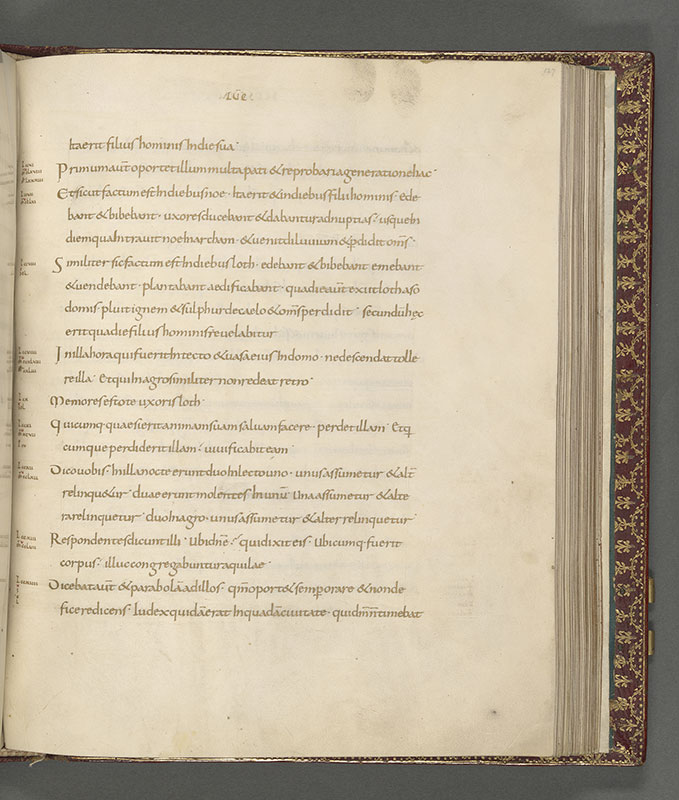 LUC
Ita erit filius hominis In die sua
Primum aut oportet illum multa pati & reprobari a generatione hac
Et sicut factum est In diebus noe · Ita erit & In diebus filii hominis · ede
bant & bibebant · uxores ducebant & dabantur ad nuptias · usque In
diem qua Intrauit noe In archam · & uenit diluuium & pdidit oms
Similiter sic factum est In diebus loth · edebant & bibebant emebant
& uendebant · plantabant aedificabant · qua die aut exiit loth a so
domis · pluit ignem & sulphur de caelo & oms perdidit · secundu hęc
erit qua die filius hominis reuelabitur
In illa hora qui fuerit In tecto & uasa eius In domo · ne descendat tolle
re illa · Et qui In agro similiter non redeat retro
Memores estote uxoris loth
Quicumq quaesierit animam suam saluam facere · perdet illam · Et q
cumque perdiderit illam · uiuificabit eam
Dico uobis · In illa nocte erunt duo In lecto uno · unus assumetur & alt
relinqu&ur · duae erunt molentes In unu · Una assumetur & alte
ra relinquetur · duo In agro · unus assumetur & alter relinquetur
Respondentes dicunt illi · Ubi dne · qui dixit eis · Ubicumq fuerit
corpus · illuc congregabuntur aquilae
Dicebat aut & parabola ad illos · qm oport& semp orare & non de
ficere dicens · Iudex quida erat In quada ciuitate · qui dm n timebat